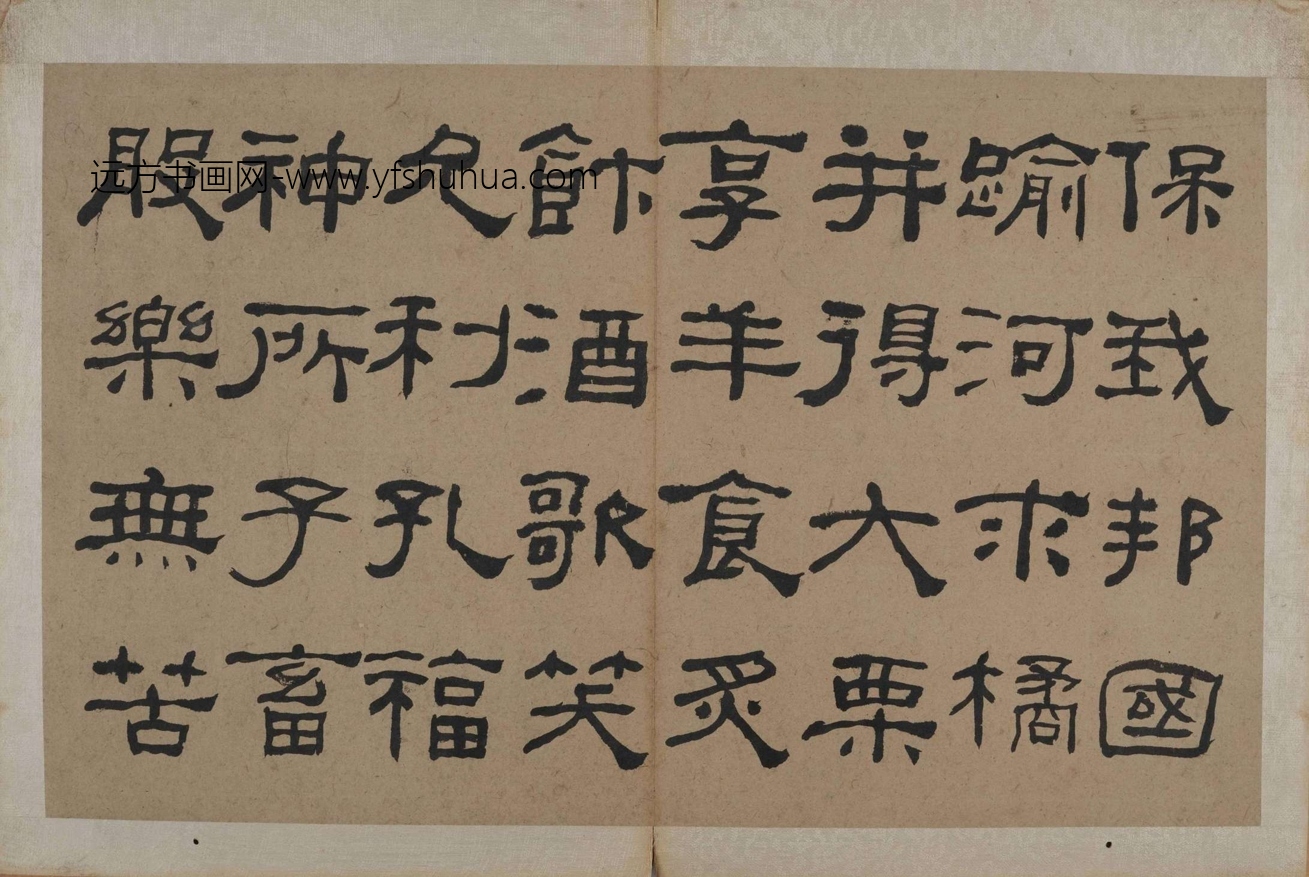 保我邦國
踰河求橘
并得大栗
享羊食炙
飰酒歌笑
利孔福
神所子畜
般樂無苦
远方书画网-www.yfshuhua.com